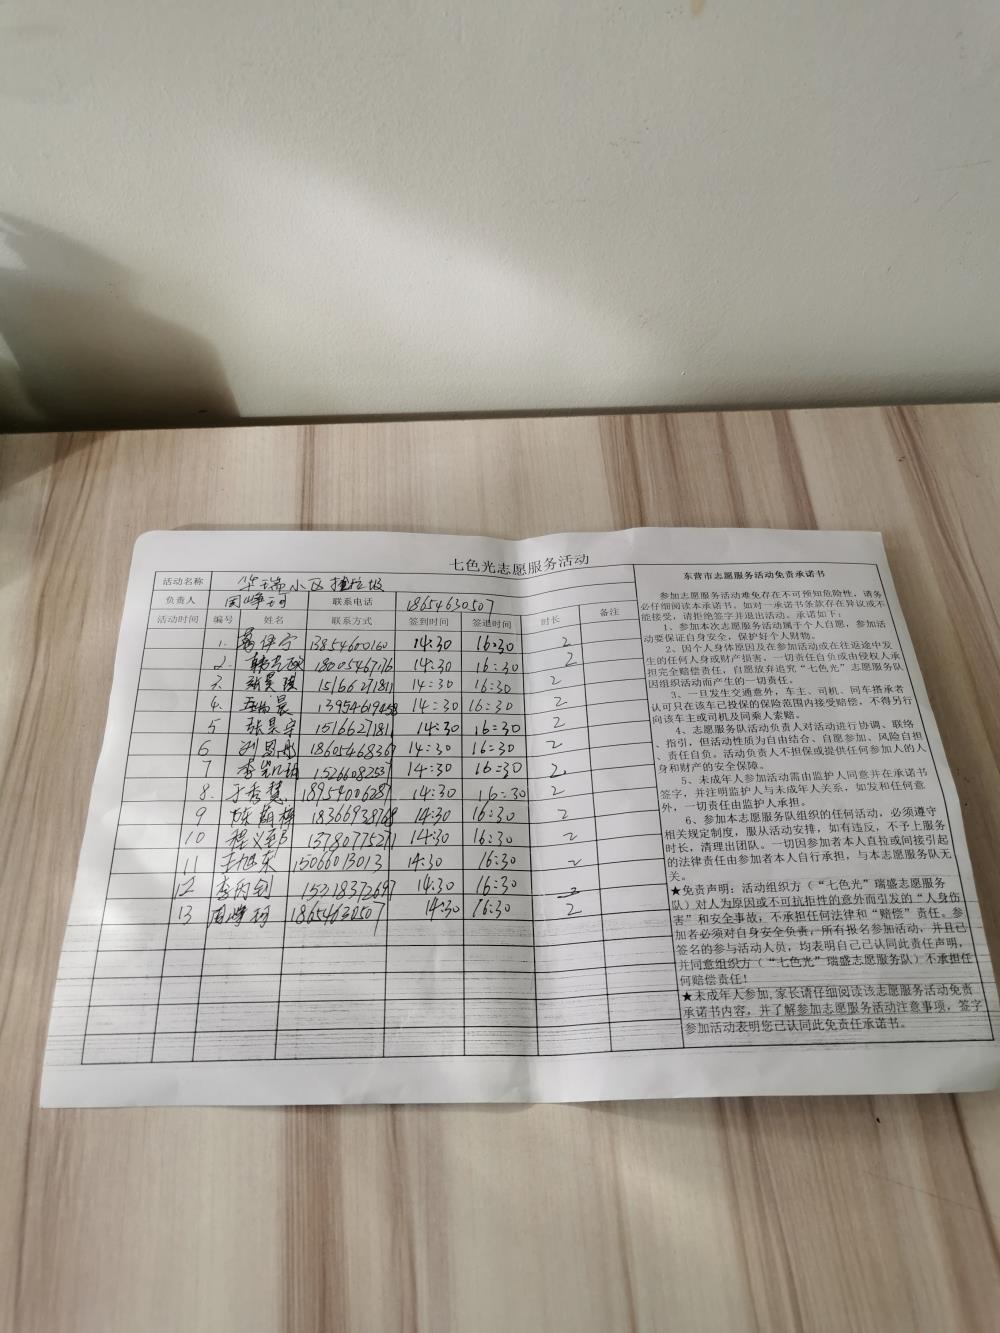 七色光志愿服务活动
活动名称 华瑞小区捡垃圾
负责人 联系电话 18654630507
活动时间 编号 姓名 联系方式 签到时间 签退时间 时长 备注
1. 13854600160 14:30 16:30 2
2. 18005467176 14:30 16:30 2
3. 张昊琪 15166271811 14:30 16:30 2
4. 13954619458 14:30 16:30 2
5 张昊宇 1516627181 14:30 16:30 2
6 18605468367 14:30 16:30 2
7 15266082537 14:30 16:30 2.
8. 于秀慧 18954006287 14:30 16:30 2
9 18366938768 14:30 16:30 2
10 程义 13780775271 14:30 16:30 2
11 王旭东 15066013013 14:30 16:30 2
12 15218372697 14:30 16:30 2
13 18654630507 14:30 16:30 2
东营市志愿服务活动免责承诺书
参加志愿服务活动难免存在不可预知危险性，请务
必仔细阅读本承诺书。如对一承诺书条款存在异议或不
能接受，请拒绝签字并退出活动。承诺如下：
1、参加本次志愿服务活动属于个人自愿，参加活
动要保证自身安全，保护好个人财物。
2、因个人身体原因及在参加活动或在往返途中发
生的任何人身或财产损害，一切责任自负或由侵权人承
担完全赔偿责任，自愿放弃追究“七色光”志愿服务队
因组织活动而产生的一切责任。
3、一旦发生交通意外，车主、司机、同车搭承者
认可只在该车已投保的保险范围内接受赔偿，不得另行
向该车主或司机及同乘人索赔。
4、志愿服务队活动负责人对活动进行协调、联络
、指引，但活动性质为自由结合、自愿参加、风险自担
、责任自负。活动负责人不担保或提供任何参加人的人
身和财产的安全保障。
5、未成年人参加活动需由监护人同意并在承诺书
签字，并注明监护人与未成年人关系，如发和任何意
外，一切责任由监护人承担。
6、参加本志愿服务队组织的任何活动，必须遵守
相关规定制度，服从活动安排，如有违反，不予上服务
时长，清理出团队。一切因参加者本人直拉或间接引起
的法律责任由参加者本人自行承担，与本志愿服务队无
关。
★免责声明：活动组织方（“七色光”瑞盛志愿服务
队）对人为原因或不可抗拒性的意外而引发的“人身伤
害”和安全事故，不承担任何法律和“赔偿”责任。参
加者必须对自身安全负责，所有报名参加活动，并且已
签名的参与活动人员，均表明自己已认同此责任声明，
并同意组织方（“七色光”瑞盛志愿服务队）不承担任
何赔偿责任！
★未成年人参加，家长请仔细阅读该志愿服务活动免责
承诺书内容，并了解参加志愿服务活动注意事项，签字
参加活动表明您已认同此免责任承诺书。